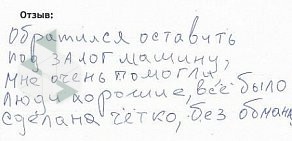 Отзыв:
Обратился оставить
под залог машину,
мне очень помогли
люди хорошие, всё было
сделана чётко, без обмана